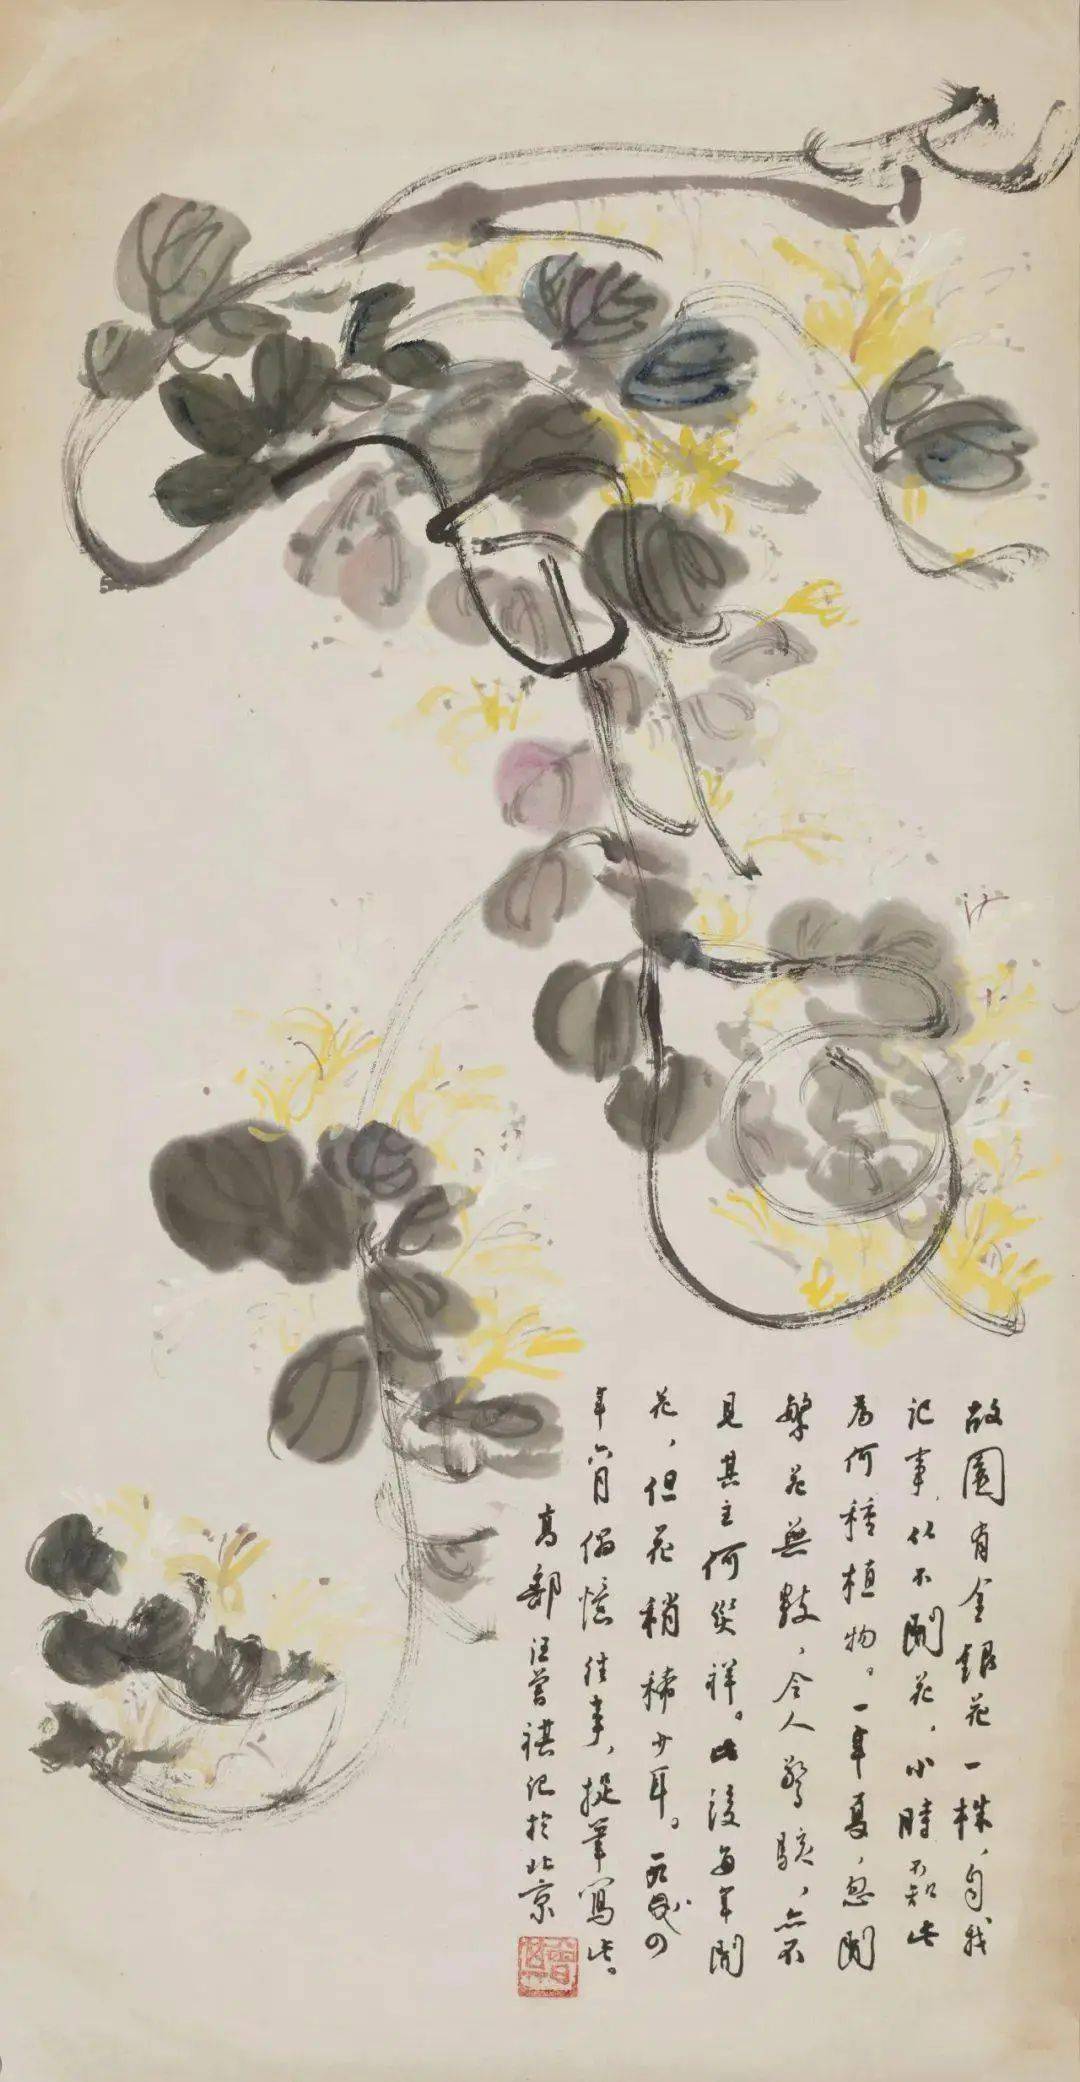 故園有金銀花一株,自我
记事,从不開花,小時不知此
为何種植物。一年夏,忽開
繁花無數,令人驚駭,亦不
見其主何災祥。此後每年開
花,但花稍稀少耳。
年六月偶憶往事,捉筆寫此。
高郵汪曾祺记於北京